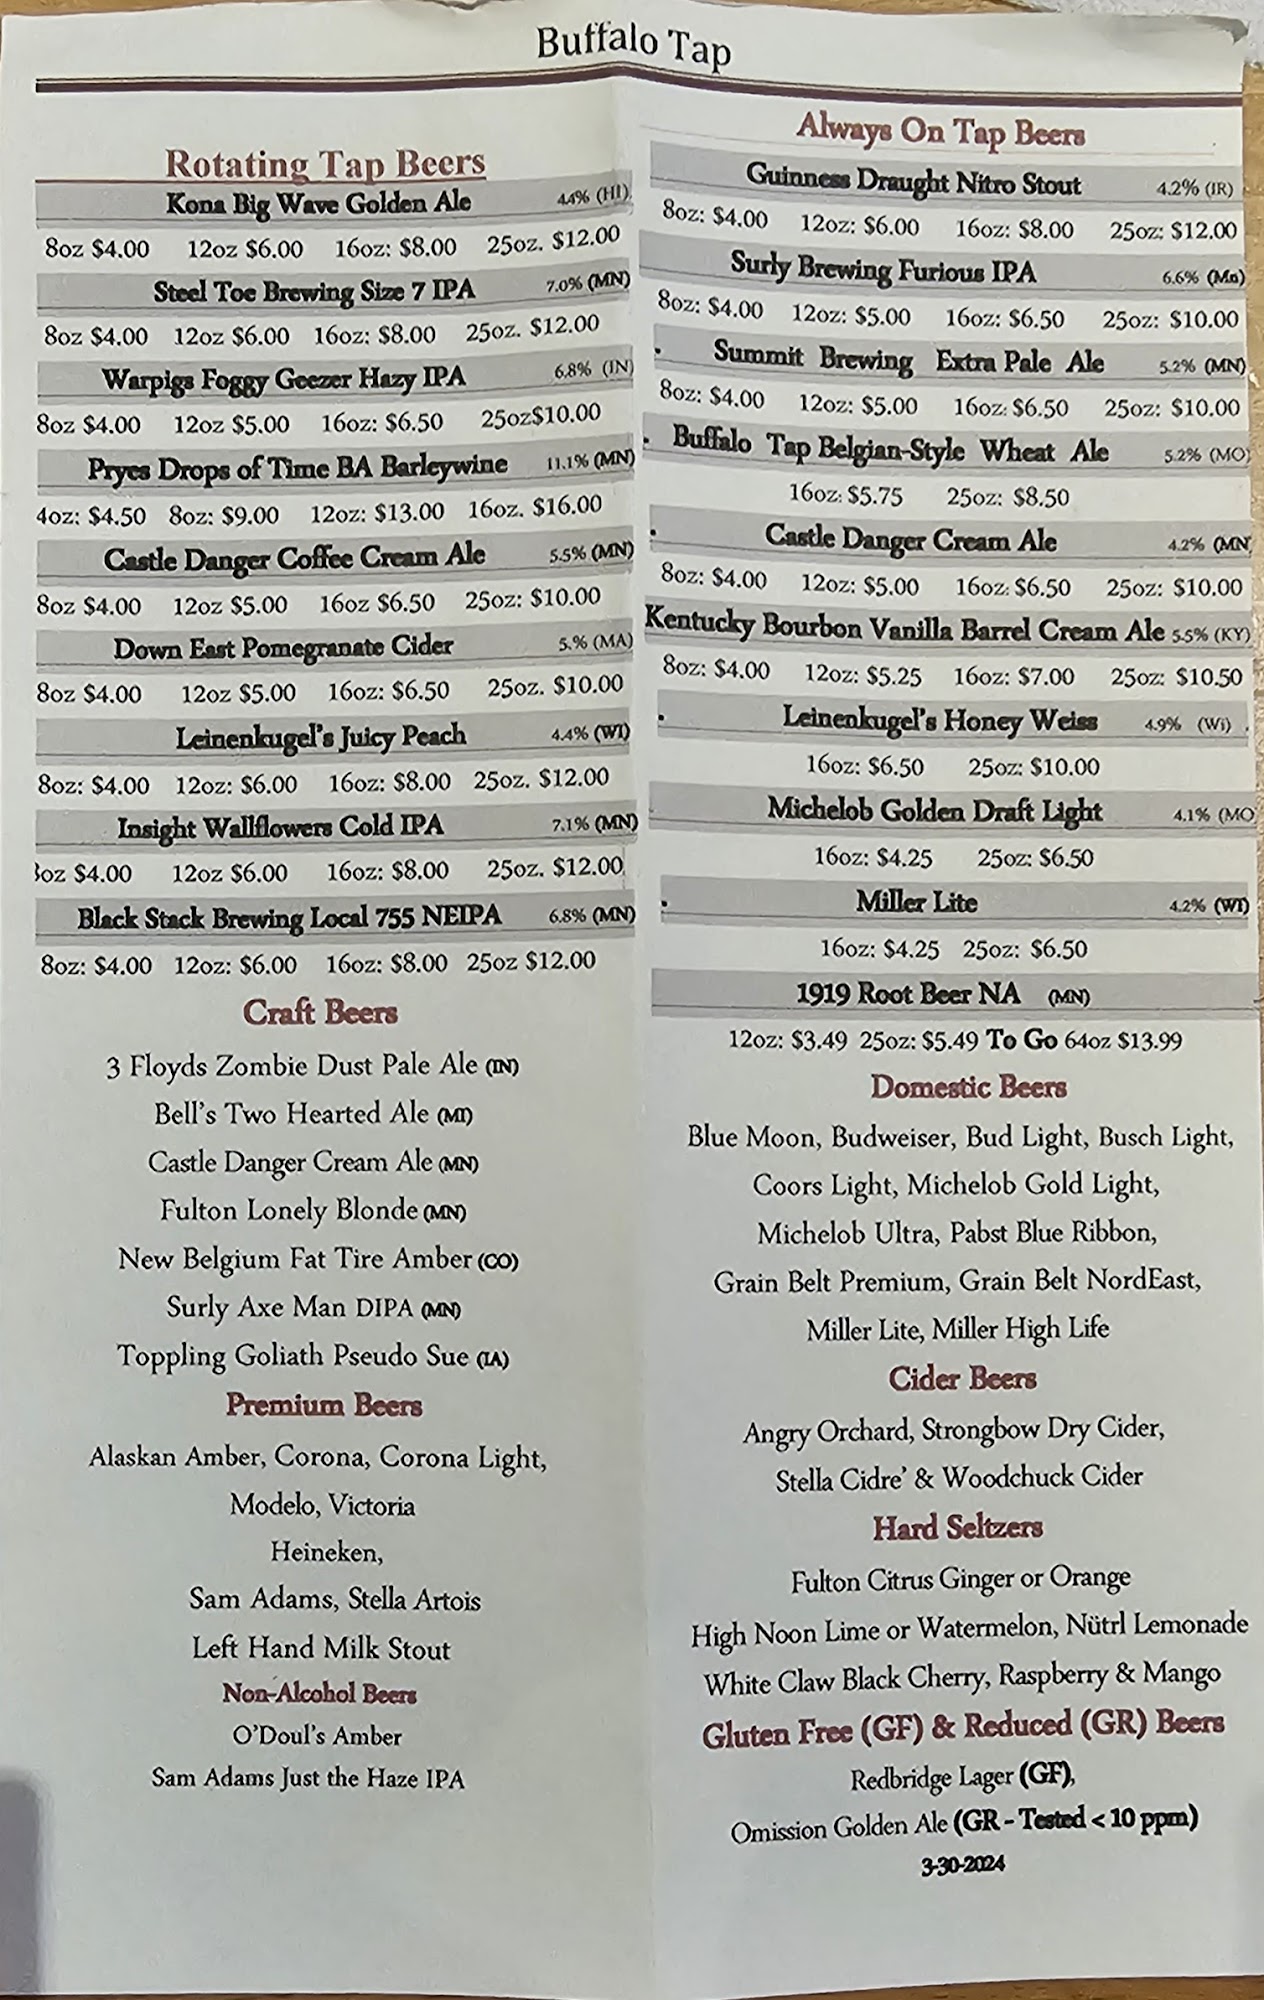 Buffalo Tap
Rotating Tap Beers
Kona Big Wave Golden Ale 4.4% (HI)
8oz $4.00 12oz $6.00 16oz: $8.00 25oz. $12.00
Steel Toe Brewing Size 7 IPA 7.0% (MN)
8oz $4.00 12oz $6.00 16oz: $8.00 25oz. $12.00
Warpigs Foggy Geezer Hazy IPA 6.8% (IN)
8oz $4.00 12oz $5.00 16oz: $6.50 25oz$10.00
Pryes Drops of Time BA Barleywine 11.1% (MN)
4oz: $4.50 8oz: $9.00 12oz: $13.00 16oz. $16.00
Castle Danger Coffee Cream Ale 5.5% (MN)
8oz $4.00 12oz $5.00 16oz $6.50 25oz: $10.00
Down East Pomegranate Cider 5.% (MA)
8oz $4.00 12oz $5.00 16oz: $6.50 25oz. $10.00
Leinenkugel's Juicy Peach 4.4% (WI)
8oz: $4.00 12oz: $6.00 16oz: $8.00 25oz. $12.00
Insight Wallflowers Cold IPA 7.1% (MN)
8oz $4.00 12oz $6.00 16oz: $8.00 25oz. $12.00
Black Stack Brewing Local 755 NEIPA 6.8% (MN)
8oz: $4.00 12oz: $6.00 16oz: $8.00 25oz $12.00
Craft Beers
3 Floyds Zombie Dust Pale Ale (IN)
Bell's Two Hearted Ale (MI)
Castle Danger Cream Ale (MN)
Fulton Lonely Blonde (MN)
New Belgium Fat Tire Amber (CO)
Surly Axe Man DIPA (MN)
Toppling Goliath Pseudo Sue (IA)
Premium Beers
Alaskan Amber, Corona, Corona Light,
Modelo, Victoria
Heineken,
Sam Adams, Stella Artois
Left Hand Milk Stout
Non-Alcohol Beers
O'Doul's Amber
Sam Adams Just the Haze IPA
Always On Tap Beers
Guinness Draught Nitro Stout 4.2% (IR)
8oz: $4.00 12oz: $6.00 16oz: $8.00 25oz: $12.00
Surly Brewing Furious IPA 6.6% (Mn)
8oz: $4.00 12oz: $5.00 16oz: $6.50 25oz: $10.00
Summit Brewing Extra Pale Ale 5.2% (MN)
8oz: $4.00 12oz: $5.00 16oz: $6.50 25oz: $10.00
Buffalo Tap Belgian-Style Wheat Ale 5.2% (MO)
16oz: $5.75 25oz: $8.50
Castle Danger Cream Ale 4.2% (MN)
8oz: $4.00 12oz: $5.00 16oz: $6.50 25oz: $10.00
Kentucky Bourbon Vanilla Barrel Cream Ale 5.5% (KY)
8oz: $4.00 12oz: $5.25 16oz: $7.00 25oz: $10.50
Leinenkugel's Honey Weiss 4.9% (Wi)
16oz: $6.50 25oz: $10.00
Michelob Golden Draft Light 4.1% (MO
16oz: $4.25 25oz: $6.50
Miller Lite 4.2% (WI)
16oz: $4.25 25oz: $6.50
1919 Root Beer NA (MN)
12oz: $3.49 25oz: $5.49 To Go 64oz $13.99
Domestic Beers
Blue Moon, Budweiser, Bud Light, Busch Light,
Coors Light, Michelob Gold Light,
Michelob Ultra, Pabst Blue Ribbon,
Grain Belt Premium, Grain Belt NordEast,
Miller Lite, Miller High Life
Cider Beers
Angry Orchard, Strongbow Dry Cider,
Stella Cidre' & Woodchuck Cider
Hard Seltzers
Fulton Citrus Ginger or Orange
High Noon Lime or Watermelon, Nütrl Lemonade
White Claw Black Cherry, Raspberry & Mango
Gluten Free (GF) & Reduced (GR) Beers
Redbridge Lager (GF),
Omission Golden Ale (GR - Tested < 10 ppm)
3-30-2024